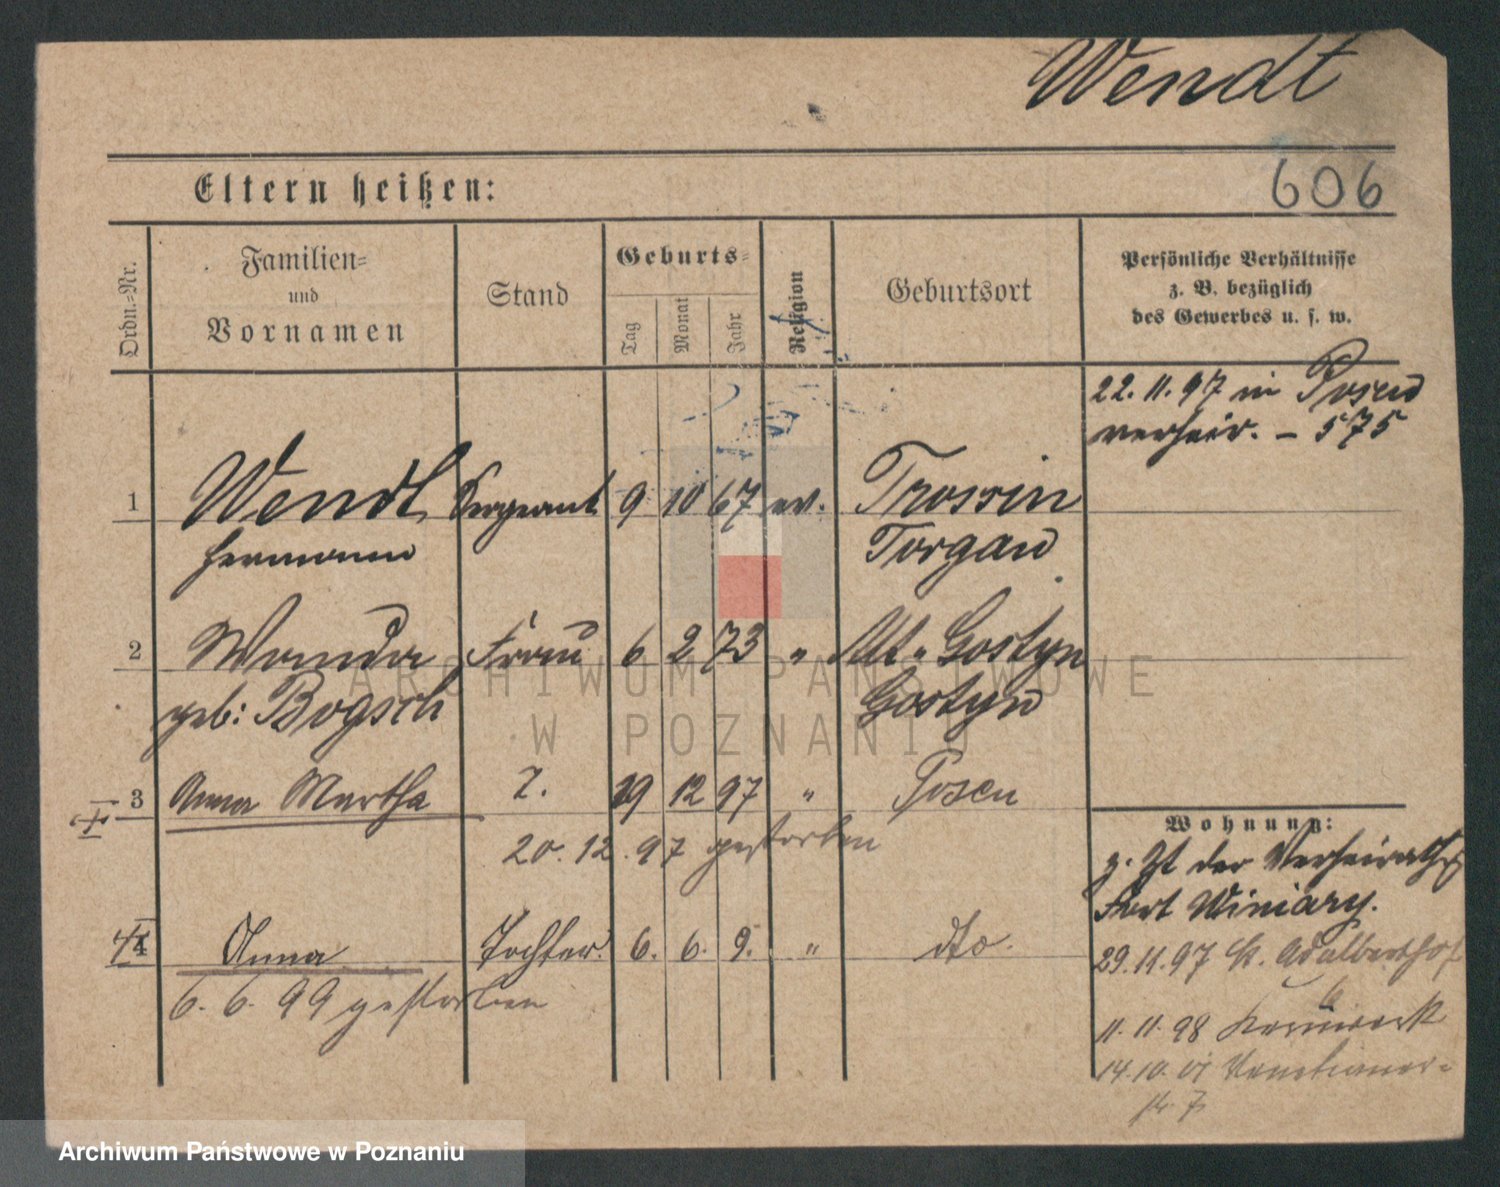 Wendt
606
Eltern heißen:
Ordn.-Nr.
Familien-
und
Vornamen
Stand
Geburts-
Tag
Monat
Jahr
Religion
Geburtsort
Persönliche Verhältnisse
z. B. bezüglich
des Gewerbes u. s. w.
22. 11. 97 in Posen
verheir. – 575
1 Wendt Sergeant 9 10 67 ev. Trossin
Hermann Torgau
2 Wanda Frau 6 2 73 " Alt-Gostyn
geb: Bogsch Gostyn
3 Anna Martha T. 19 12 97 " Posen
20. 12. 97 gestorben
4 Anna Tochter. 6. 6. 9. " dto.
6. 6. 99 gestorben
Wohnung:
z. Zt der Verheirathg
Fort Winiary.
29. 11. 97 St. Adalberthof
6
11. 11. 98 Kernwerk
14. 10. 01 Venetianer-
str. 7
ARCHIWUM PAŃSTWOWE
W POZNANIU
Archiwum Państwowe w Poznaniu